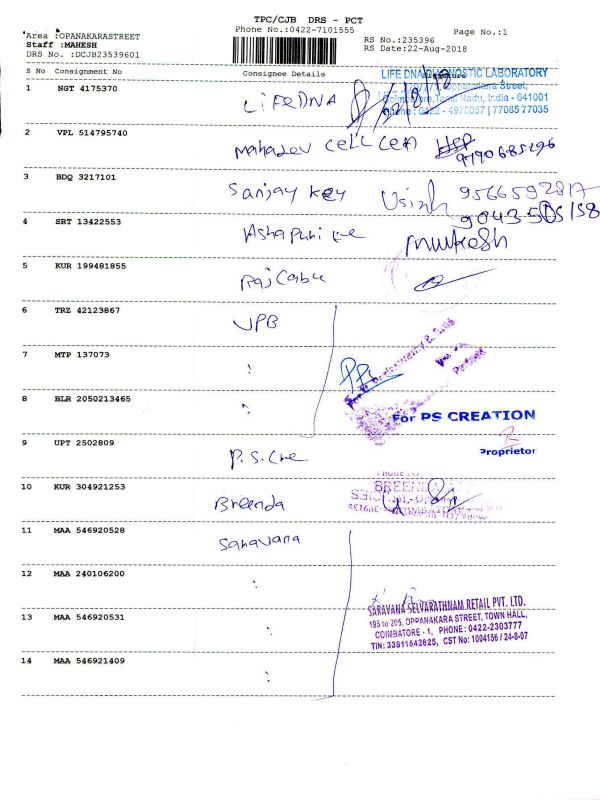 TPC/CJB DRS - PCT
Phone No.:0422-7101555
Page No.:1
Area :OPANAKARASTREET
Staff :MAHESH
DRS No. :DCJB23539601
RS No.:235396
RS Date:22-Aug-2018
S No Consignment No Consignee Details
LIFE DNA DIAGNOSTIC LABORATORY
1 NGT 4175370 LIFEDNA
Oppanakara Street,
Coimbatore, Tamil Nadu, India - 641001
Phone : 0422 - 4970057 | 77085 77035
2 VPL 514795740 Mahadev cell cen
9790685296
3 BDQ 3217101 Sanjay key
9566592817
4 SRT 13422553 Ashapuri
Mukesh
5 KUR 199481855 Raj
6 TRZ 42123867 VPB
7 MTP 137073 :
Partner
8 BLR 2050213465 :
For PS CREATION
9 UPT 2502809 P.S.Cre
Proprietor
10 KUR 304921253 Breenda
BREENDA
11 MAA 546920528 Saravana
12 MAA 240106200 :
SARAVANA SELVARATHNAM RETAIL PVT. LTD.
195 to 205, OPPANAKARA STREET, TOWN HALL,
13 MAA 546920531 :
COIMBATORE - 1, PHONE: 0422-2303777
TIN: 33811542625, CST No: 1004156 / 24-8-07
14 MAA 546921409 :